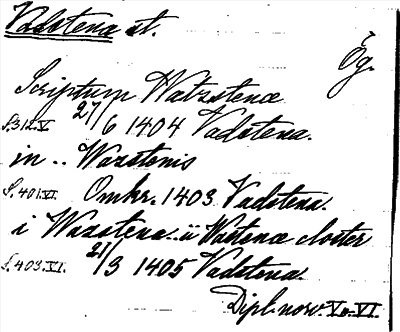 Vadstena st.
Ög.
Scriptum Watzstenæ
S.312.V 27/6 1404 Vadstena.
in .. Wazstenis
S.401.VI. Omkr. 1403 Vadstena.
i Wazstena..ii Wastenæ closter
S.403.VI. 21/3 1405 Vadstena.
Dipl. norv. V o. VI.